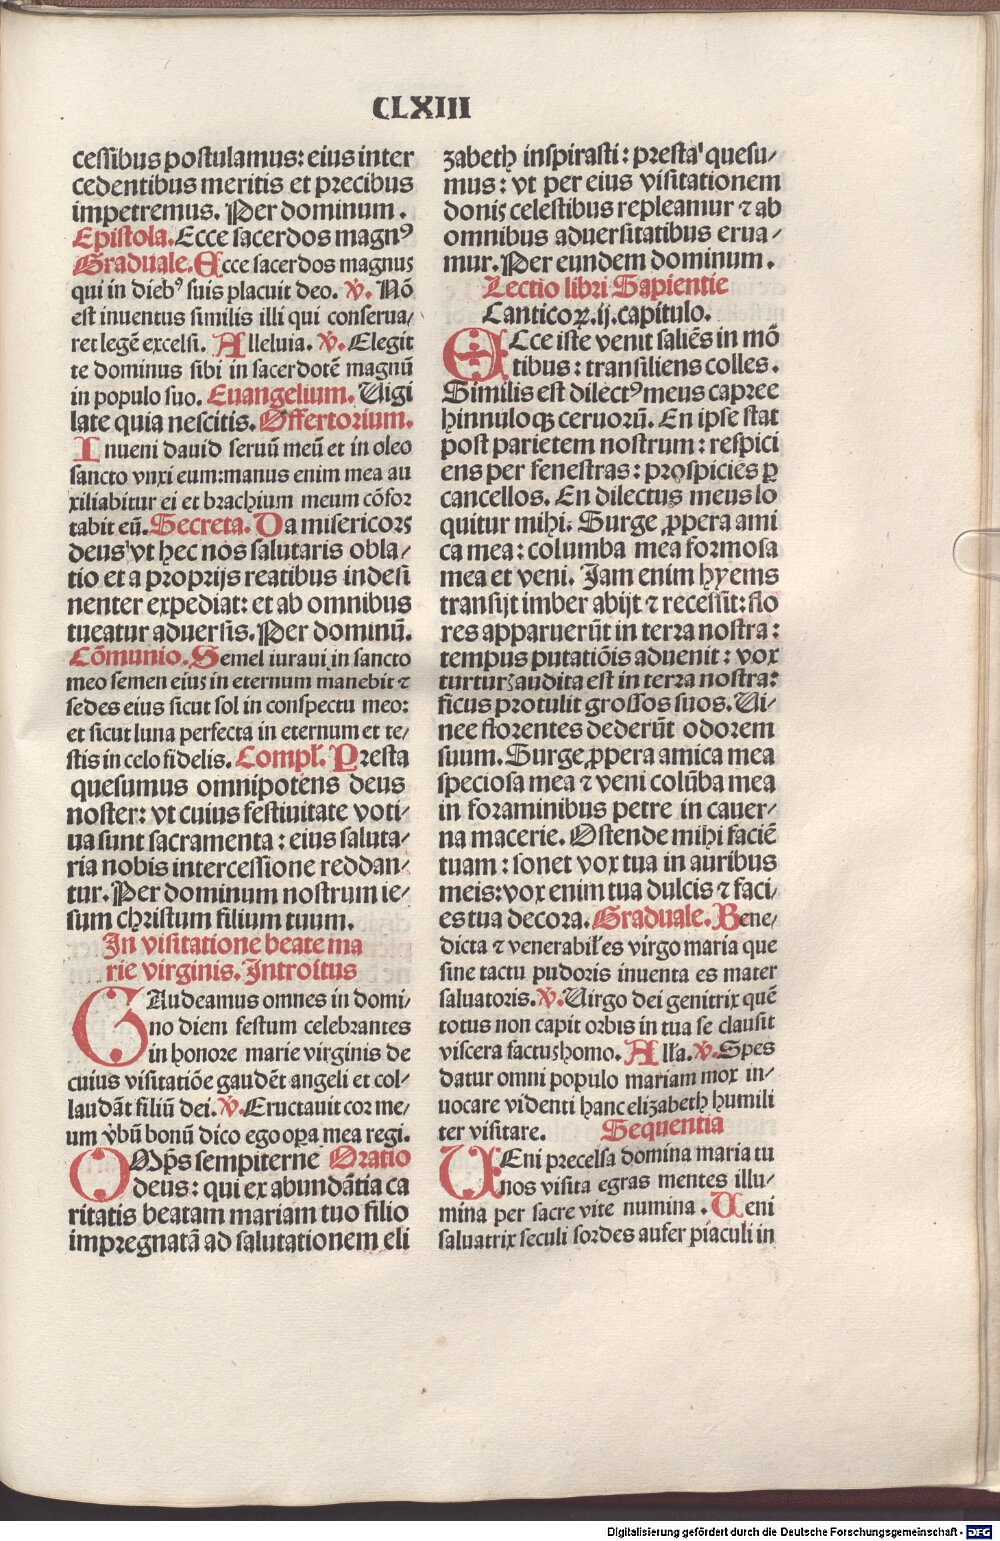 CLXIII
cessibus postulamus: eius inter
cedentibus meritis et precibus
impetremus. Per dominum.
Epistola. Ecce sacerdos magnꝰ
Graduale. Ecce sacerdos magnus
qui in diebꝰ suis placuit deo. ℣. Nō
est inuentus similis illi qui conserua/
ret legē excelsi. Alleluia. ℣. Elegit
te dominus sibi in sacerdotē magnū
in populo suo. Euangelium. Uigi
late quia nescitis. Offertorium.
Inueni dauid seruū meū et in oleo
sancto vnxi eum: manus enim mea au
xiliabitur ei et brachium meum cōfor
tabit eū. Secreta. Da misericors
deus vt hec nos salutaris obla/
tio et a proprijs reatibus indesi
nenter expediat: et ab omnibus
tueatur aduersis. Per dominū.
Cōmunio. Semel iuraui in sancto
meo semen eius in eternum manebit ⁊
sedes eius sicut sol in conspectu meo:
et sicut luna perfecta in eternum et te/
stis in celo fidelis. Compl. Presta
quesumus omnipotens deus
noster: vt cuius festiuitate voti/
ua sunt sacramenta: eius saluta/
ria nobis intercessione reddan/
tur. Per dominum nostrum ie/
sum christum filium tuum.
In visitatione beate ma
rie virginis. Introitus
GAudeamus omnes in domi/
no diem festum celebrantes
in honore marie virginis de
cuius visitatiōe gaudēt angeli et col/
laudāt filiū dei. ℣. Eructauit cor me/
um v̄bū bonū dico ego oꝑa mea regi.
OMp̄s sempiterne Oratio
deus: qui ex abundātia ca
ritatis beatam mariam tuo filio
impregnatā ad salutationem eli
zabeth inspirasti: presta quesu/
mus: vt per eius visitationem
donis celestibus repleamur ⁊ ab
omnibus aduersitatibus erua/
mur. Per eundem dominum.
Lectio libri Sapientie
Canticoꝝ. ij. capitulo.
ECce iste venit saliēs in mō
tibus: transiliens colles.
Similis est dilectꝰ meus capree
hinnuloqꝫ ceruorū. En ipse stat
post parietem nostrum: respici
ens per fenestras: prospiciēs ꝑ
cancellos. En dilectus meus lo
quitur mihi. Surge ꝓpera ami
ca mea: columba mea formosa
mea et veni. Jam enim hyems
transijt imber abijt ⁊ recessit: flo
res apparuerūt in terra nostra:
tempus putatiōis aduenit: vox
turturis audita est in terra nostra:
ficus protulit grossos suos. Ui/
nee florentes dederūt odorem
suum. Surge ꝓpera amica mea
speciosa mea ⁊ veni colūba mea
in foraminibus petre in cauer/
na macerie. Ostende mihi faciē
tuam: sonet vox tua in auribus
meis: vox enim tua dulcis ⁊ faci/
es tua decora. Graduale. Bene/
dicta ⁊ venerabiles virgo maria que
sine tactu pudoris inuenta es mater
saluatoris. ℣. Uirgo dei genitrix quē
totus non capit orbis in tua se clausit
viscera factus homo. Alla. ℣. Spes
datur omni populo mariam mox in/
uocare videnti hanc elizabeth humili
ter visitare. Sequentia
UEni precelsa domina maria tu
nos visita egras mentes illu/
mina per sacre vite numina. Ueni
saluatrix seculi sordes aufer piaculi in
Digitalisierung gefördert durch die Deutsche Forschungsgemeinschaft - DFG